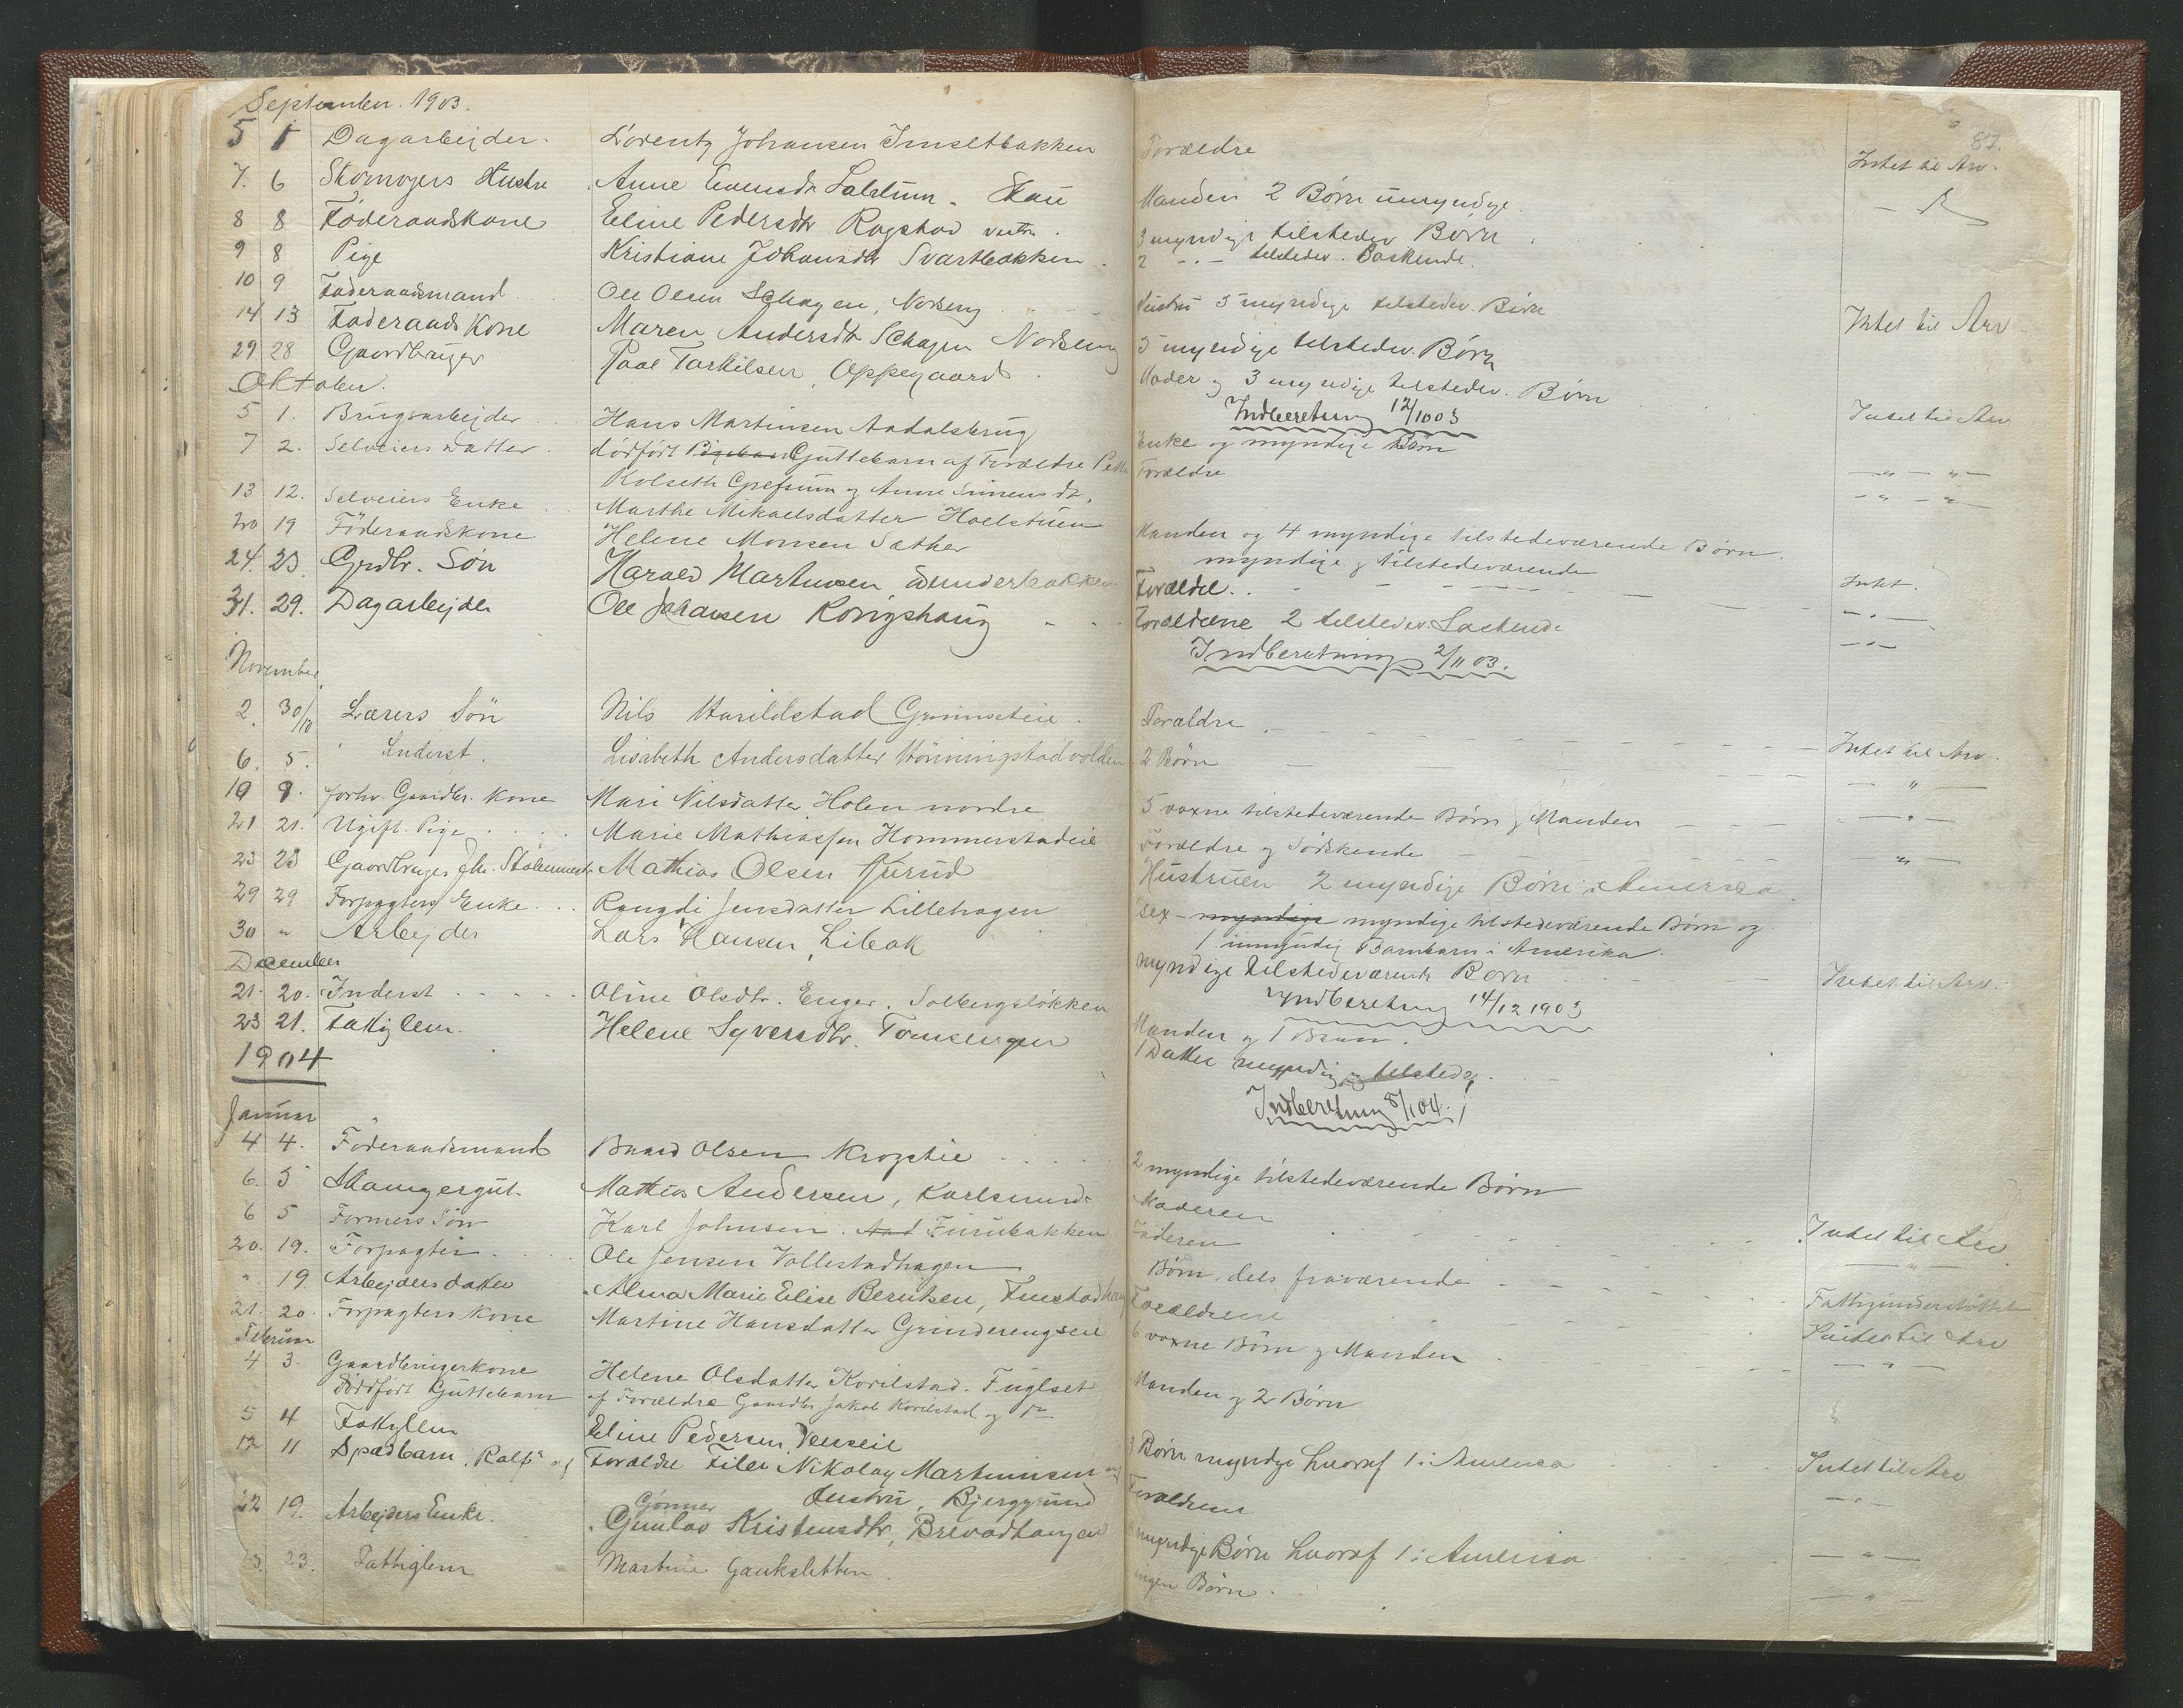 September. 1903.
5 5 Dagarbejder. Lorentz Johansen Imseltbakken
7. 6 Skomagers Hustru Anne Evensdr Lalstum.
8 8 Föderaadskone Eline Pedersdtr Rogstad vestre.
9 8 Pige Kristiane Johansdtr Svartbakken.
10 9 Föderaadsmand Ole Olsen Schagen, Norseng
14 13 Föderaads Kone Maren Andersdtr Schagen Norseng
29 28 Gaardbruger Paal Tarkilsen, Oppegaard
Oktober.
5 1. Brugsarbejder Hans Martinsen Aadalsbrug
7 2. Selveiers datter. dødfödt Guttebarn af Forældre
Kolseth Grefsum og Anne Simensdr.
13 12. Selveiers Enke Marthe Mikaelsdatter Hoelstuen
20 19 Föderaadskone Helene Monsen Sæther
24. 23. Grdbr. Sön Harald Martinsen
31. 29. Dagarbejder Ole Johansen Kongshaug
November
2. 30/10 Lærers Sön Nils Harildstad Grimsteie.
6. 5. Inderst. Lisabeth Andersdatter Hönningstadvolden
10 8. forhv. Gaardbr. Kone Mari Nilsdatter Holen nordre
21 21. Ugift. Pige Marie Mathiassen Hommerstadeie
23 23 Gaardbruger Mathias Olsen Kurud
29 29 Forpagters Enke Rangdi Jensdatter Lillehagen
30 " Arbejder Lars Hansen, Libak
December
21. 20. Inderst Oline Olsdtr. Enger. Solbergsløkken
23 21. Fattiglem. Helene Syversdtr. Tomsengen
1904
Januar
4 4. Föderaadsmand Baard Olsen Kropseie
6. 5 Mathias Andersen, Karlsrud
6 5 Formers Sön Karl Johnsen. Furubakken
20. 19. Forpagter Ole Jensen Vollestadhagen
". 19 Arbejders datter Alma Marie Elise Berntsen,
21. 20. Forpagters Kone Martine Hansdatter Grinderengseie
Februar
4 3. Gaardbrugerkone Helene Olsdatter Korilstad. Fuglset
Dödfödt Guttebarn af Forældre Gaardbr Jakob Korilstad og
5 4 Fattiglem Eline Pedersen,
12 11 Spædbarn, Ralf af Forældre Filer Nikolay Martinsen og
Hustru, Bjerggrund
22 19. Arbejders Enke. Gunlav Kristensdtr, Brevadhaugen
23. Fattiglem Martine Gauksletten
87.
Forældre Intet til Arv.
Manden 2 Börn umyndige.
3 myndige tilstedev Börn.
2 - . - tilstedev. Søskende.
Hustru 5 myndige tilstedev. Börn Intet til Arv
5 myndige tilstedev. Börn
Moder og 3 myndige tilstedev. Börn
Indberetning 12/10 03 Intet til Arv
Enke og myndige Börn
Forældre
Manden og 4 myndige tilstedeværende Börn.
myndige og tilstedeværende
Forældre. Intet.
Forældrene 2 tilstedev. Søskende
Indberetning 2/11 03.
Forældre Intet til Arv.
2 Börn
5 voxne tilstedeværende Börn og Manden
Forældre og Södskende
Hustruen 2 myndige Börn i Amerika
sex myndige myndige tilstedeværende Börn og
1 umyndig Barnbarn i Amerika.
myndige tilstedeværende Börn Intet til Arv.
Indberetning 14/12 1903
Manden og 1 Barn.
1 Datter myndig og tilstede.
Indberetning 8/1 04.
2 myndige tilstedeværende Börn
Moderen
Faderen Intet til Arv
Börn, dels fraværende
Forældrene Fattigunderstöttet
6 voxne Börn og Manden Intet til Arv
Manden og 2 Börn
3 Börn myndige hvoraf 1 i Amerika Intet til Arv
Forældrene
myndige Börn hvoraf 1 i Amerika
ingen Börn.